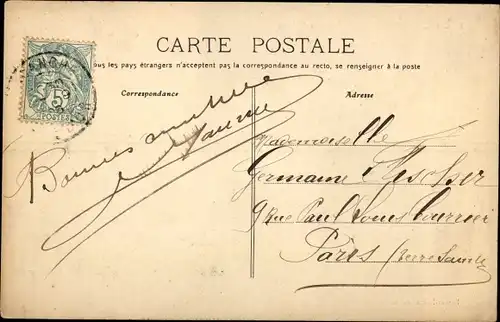 CARTE POSTALE
ous les pays étrangers n'acceptent pas la correspondance au recto, se renseigner à la poste
Correspondance
Adresse
5c
POSTES
Bonnes
Mademoiselle
Germaine
9 Rue Paul Louis Courrier
Paris